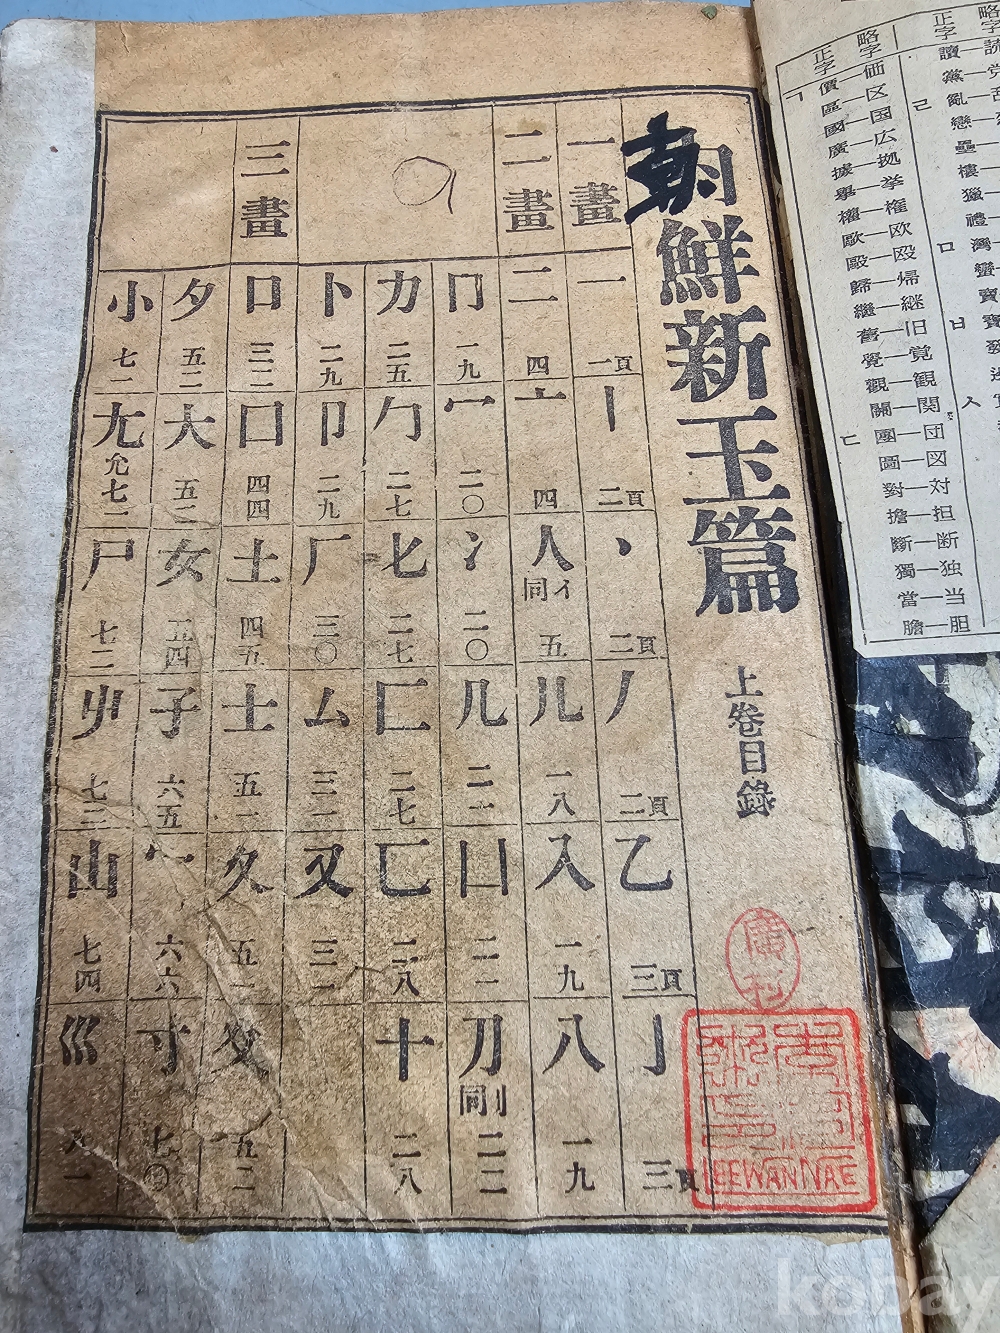 朝鮮新玉篇 上卷目錄
一畫 一 一頁 丨 二頁 丶 二頁 丿 二頁 乙 三頁 亅 三頁
二畫 二 四 亠 四 人 同亻 五 儿 一八 入 一九 八 一九
冂 一九 冖 二〇 冫 二〇 几 二一 凵 二二 刀 同刂 二二
力 二五 勹 二七 匕 二七 匚 二七 匸 二八 十 二八
卜 二九 卩 二九 厂 三〇 厶 三一 又 三一
三畫 口 三二 囗 四四 土 四五 士 五一 夂 五一 夊 五二
夕 五二 大 五二 女 五四 子 六五 宀 六六 寸 七〇
小 七一 尢 允 七二 尸 七二 屮 七三 山 七四 巛 八一
LEEWANNAE
正字 略字
ㄱ
價―価
區―区
國―国
廣―広
據―拠
擧―挙
權―権
歐―欧
毆―殴
歸―帰
繼―継
舊―旧
覺―覚
觀―観
關―関
ㄷ
團―団
圖―図
對―対
擔―担
斷―断
獨―独
當―当
膽―胆
正字 略字
讀―読
黨―党
ㄹ
亂
戀
壘
樓
獵
禮
ㅁ
灣
蠻
ㅂ
寶
發
ㅅ
kobay